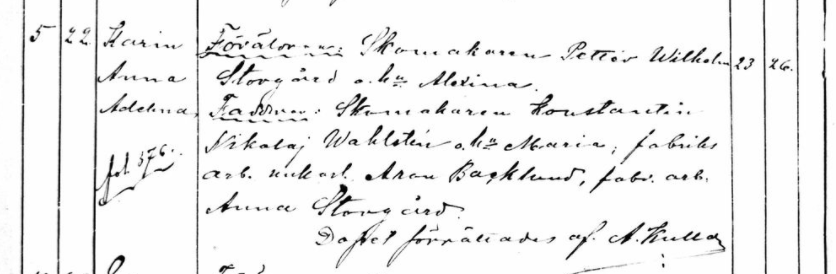 5 22 Karin Föräldrar: Skomakaren Petter Wilhelm 23 26.
Anna Storgård o. hu Alexina.
Adelina, Faddrar: Skomakaren Konstantin
Nikolaj Wahlstén o. hu Maria; fabriks
fol. 576. arb. unkarl Aron Backlund, fabr. arb.
Anna Storgård.
Dopet förrättades af A. Kulla